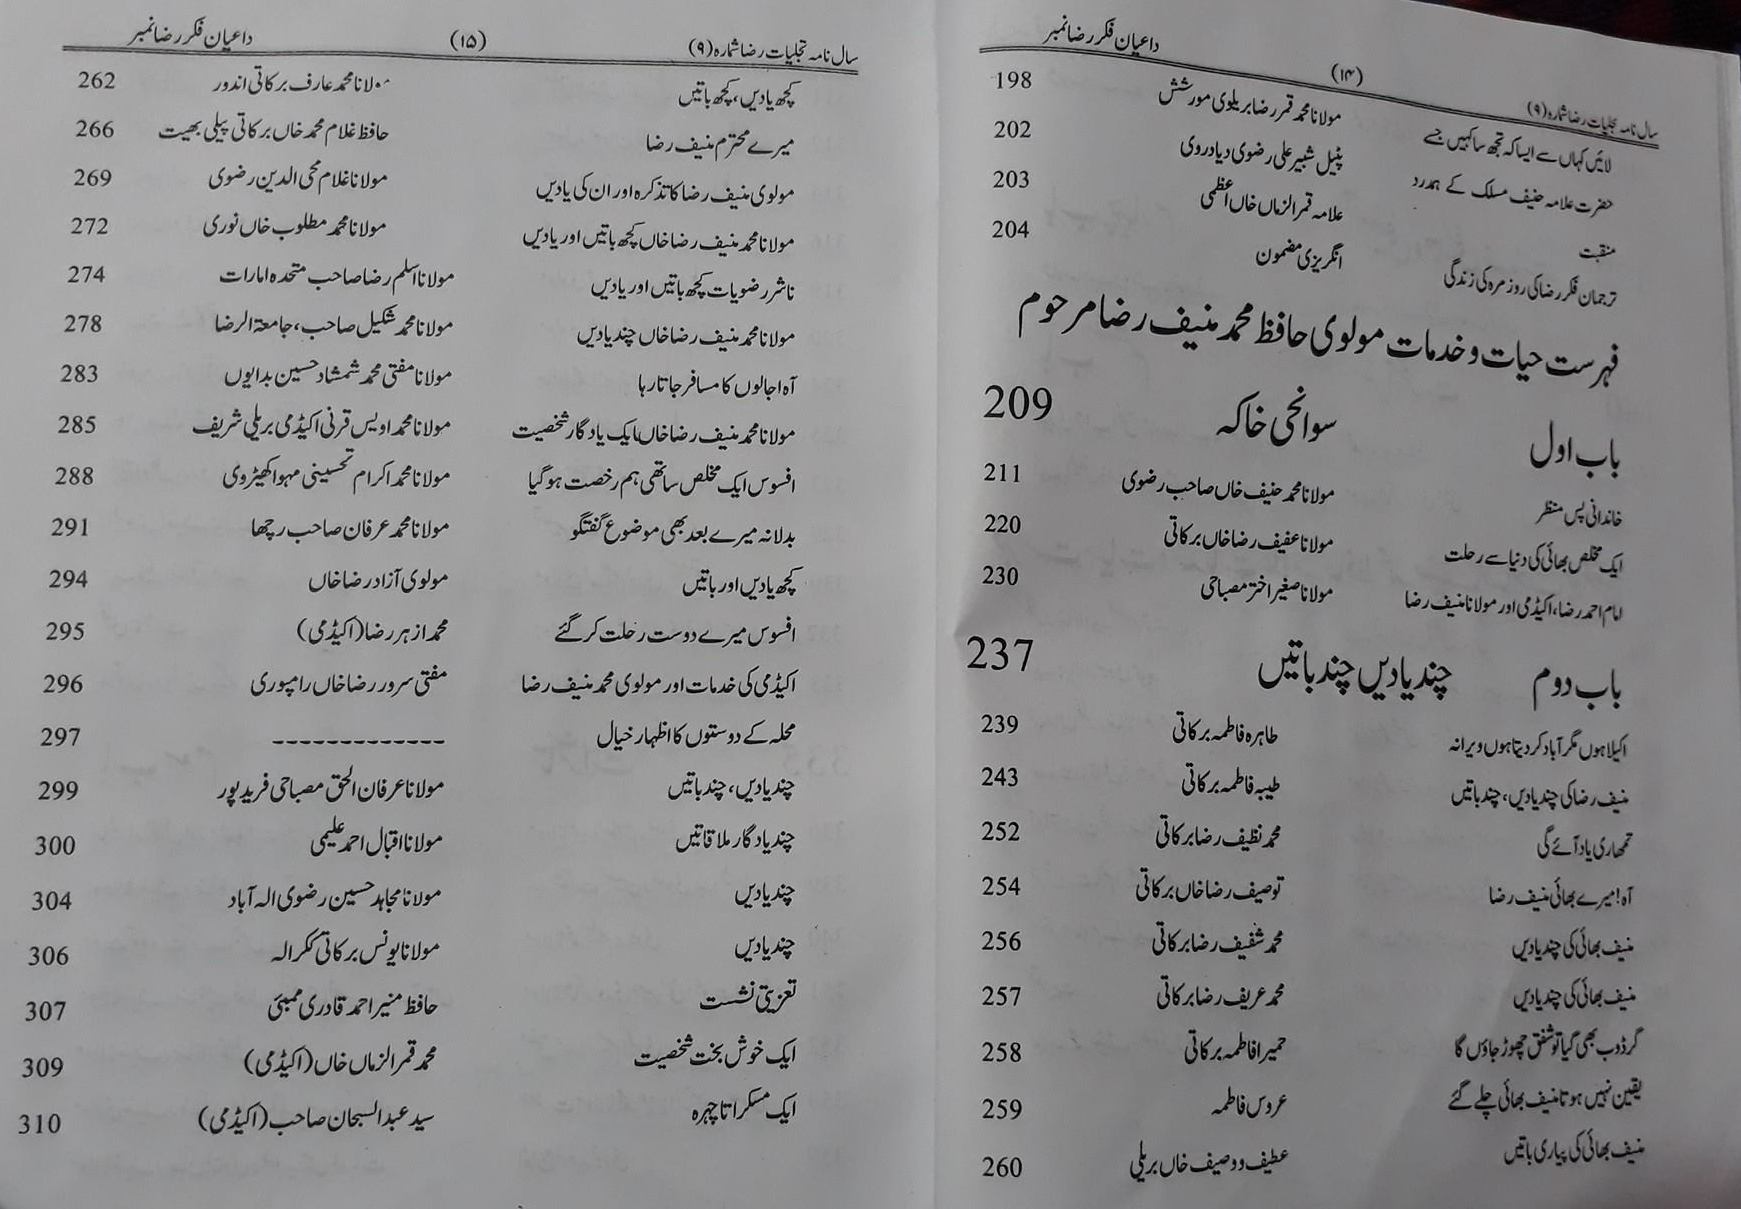 سال نامہ تجلیات رضا شمارہ (۹) (۱۴) داعیان فکر رضا نمبر
لائیں کہاں سے ایسا کہ تجھ سا کہیں جسے مولانا محمد قمر رضا بریلوی مورشش 198
حضرت علامہ حنیف مسلک کے ہمدرد پٹیل شبیر علی رضوی دیادروی 202
منقبت علامہ قمر الزماں خاں اعظمی 203
ترجمان فکر رضا کی روز مرہ کی زندگی انگریزی مضمون 204
فہرست حیات و خدمات مولوی حافظ محمد منیف رضا مرحوم
باب اول سوانحی خاکہ 209
خاندانی پس منظر مولانا محمد حنیف خاں صاحب رضوی 211
ایک مخلص بھائی کی دنیا سے رحلت مولانا عفیف رضا خاں برکاتی 220
امام احمد رضا، اکیڈمی اور مولانا منیف رضا مولانا صغیر اختر مصباحی 230
باب دوم چند یادیں چند باتیں 237
اکیلا ہوں مگر آباد کر دیتا ہوں ویرانہ طاہرہ فاطمہ برکاتی 239
منیف رضا کی چند یادیں، چند باتیں طیبہ فاطمہ برکاتی 243
تمھاری یاد آئے گی محمد نظیف رضا برکاتی 252
آہ! میرے بھائی منیف رضا توصیف رضا خاں برکاتی 254
منیف بھائی کی چند یادیں محمد شفیف رضا برکاتی 256
منیف بھائی کی چند یادیں محمد عریف رضا برکاتی 257
گر ڈوب بھی گیا تو شفق چھوڑ جاؤں گا حمیرا فاطمہ برکاتی 258
یقین نہیں ہوتا منیف بھائی چلے گئے عروس فاطمہ 259
منیف بھائی کی پیاری باتیں عطیف و وصیف خاں بریلی 260
سال نامہ تجلیات رضا شمارہ (۹) (۱۵) داعیان فکر رضا نمبر
کچھ یادیں، کچھ باتیں مولانا محمد عارف برکاتی اندور 262
میرے محترم منیف رضا حافظ غلام محمد خاں برکاتی پیلی بھیت 266
مولوی منیف رضا کا تذکرہ اور ان کی یادیں مولانا غلام محی الدین رضوی 269
مولانا محمد منیف رضا خاں کچھ باتیں اور یادیں مولانا محمد مطلوب خاں نوری 272
ناشر رضویات کچھ باتیں اور یادیں مولانا اسلم رضا صاحب متحدہ امارات 274
مولانا محمد منیف رضا خاں چند یادیں مولانا محمد شکیل صاحب، جامعۃ الرضا 278
آہ اجالوں کا مسافر جاتا رہا مولانا مفتی محمد شمشاد حسین بدایوں 283
مولانا محمد منیف رضا خاں ایک یادگار شخصیت مولانا محمد اویس قرنی اکیڈمی بریلی شریف 285
افسوس ایک مخلص ساتھی ہم رخصت ہو گیا مولانا محمد اکرام تحسینی مہوا کھیڑوی 288
بدلا نہ میرے بعد بھی موضوع گفتگو مولانا محمد عرفان صاحب رچھا 291
کچھ یادیں اور باتیں مولوی آزاد رضا خاں 294
افسوس میرے دوست رحلت کر گئے محمد ازہر رضا (اکیڈمی) 295
اکیڈمی کی خدمات اور مولوی محمد منیف رضا مفتی سرور رضا خاں رامپوری 296
محلہ کے دوستوں کا اظہار خیال ------------- 297
چند یادیں، چند باتیں مولانا عرفان الحق مصباحی فرید پور 299
چند یادگار ملاقاتیں مولانا اقبال احمد علیمی 300
چند یادیں مولانا مجاہد حسین رضوی الہ آباد 304
چند یادیں مولانا یونس برکاتی ککرالہ 306
تعزیتی نشست حافظ منیر احمد قادری ممبئی 307
ایک خوش بخت شخصیت محمد قمر الزماں خاں (اکیڈمی) 309
ایک مسکراتا چہرہ سید عبد السبحان صاحب (اکیڈمی) 310